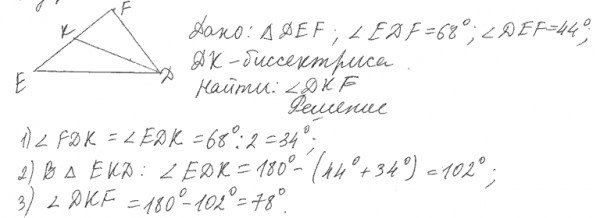 F
K
E
D
Дано: △DEF; ∠EDF=68°; ∠DEF=44°;
DK-биссектриса.
Найти: ∠DKF
Решение
1) ∠FDK = ∠EDK = 68°:2 = 34°;
2) В △ EKD: ∠EDK = 180° - (44° + 34°) = 102°;
3) ∠DKF = 180° - 102° = 78°.